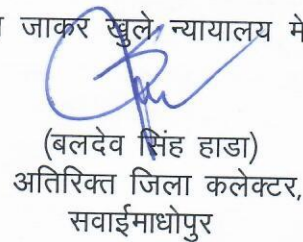 जाकर खुले न्यायालय में
(बलदेव सिंह हाडा)
अतिरिक्त जिला कलेक्टर,
सवाईमाधोपुर